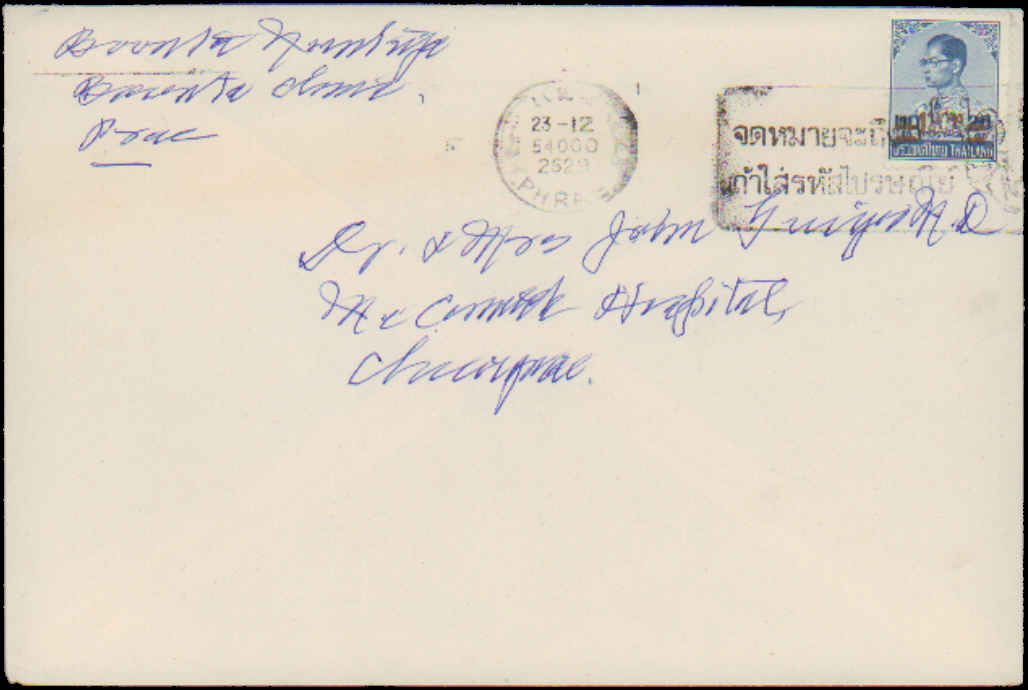 Boonta
Boonta Clinic,
Prae
PHRAE
23-12
54000
2529
จดหมายจะถึง
ถ้าใส่รหัสไปรษณีย์
ประเทศไทย THAILAND
Dr. & Mrs John M D
Mc Cormick Hospital,
Chiengmai.